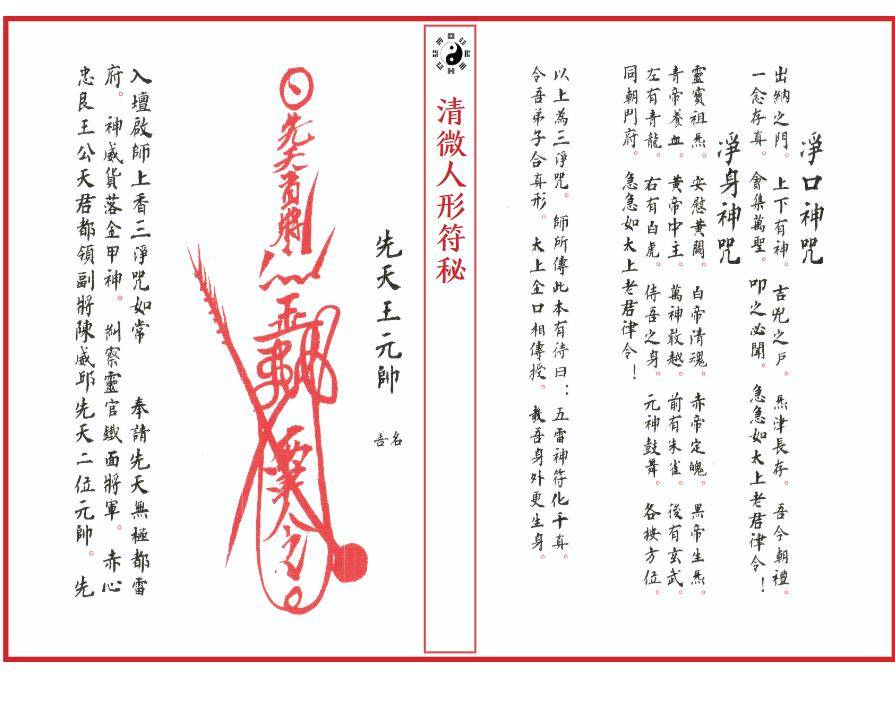 淨口神咒
出納之門。上下有神。吉兇之戶。炁津長存。吾今朝禮。
一念存真。會集萬聖。叩之必聞。急急如太上老君律令！
淨身神咒
靈寶祖炁。安慰黃闕。白帝清魂。赤帝定魄。黑帝生炁。
青帝養血。黃帝中主。萬神敢越。前有朱雀。後有玄武。
左有青龍。右有白虎。侍吾之身。元神鼓舞。各按方位。
同朝門府。急急如太上老君律令！
以上為三淨咒。師所傳此本有待曰：五雷神符化千真。
令吾弟子合真形。太上金口相傳授。教吾身外更生身。
清微人形符秘
先天王元帥
名善
先天
將
令
入壇啟師上香三淨咒如常 奉請先天無極都雷
府。神威貨落金甲神。糾察靈官鐵面將軍。赤心
忠良王公天君都領副將陳威邱先天二位元帥。先